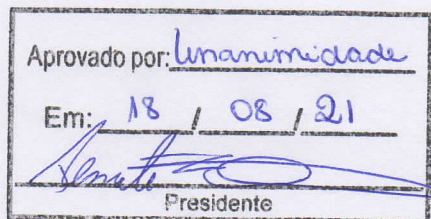 Aprovado por: Unanimidade
Em: 18 / 08 / 21
Presidente